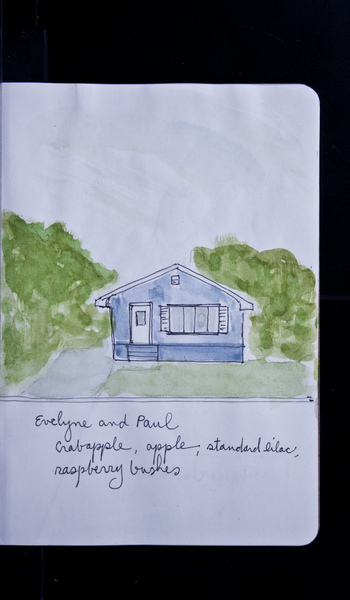 Evelyne and Paul
Crabapple, apple, standard lilac,
raspberry bushes